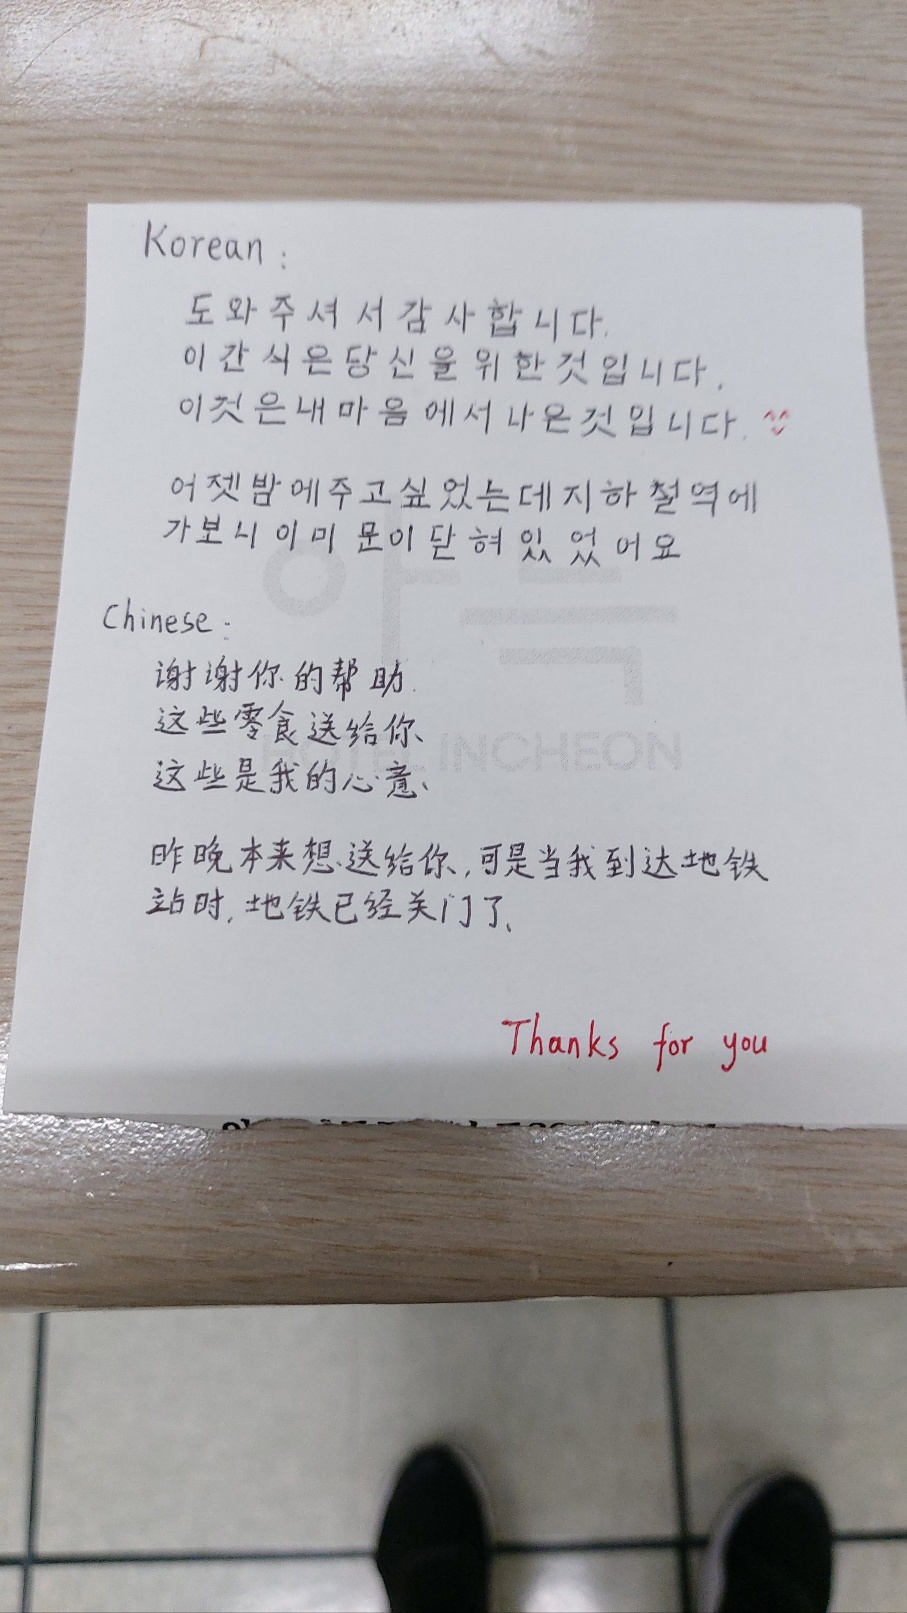 Korean :
도와주셔서감사합니다.
이간식은당신을위한것입니다.
이것은내마음에서나온것입니다. ^^
어젯밤에주고싶었는데지하철역에
가보니이미문이닫혀있었어요
Chinese :
谢谢你的帮助.
这些零食送给你、
这些是我的心意、
야놀
HOTEL INCHEON
昨晚本来想送给你,可是当我到达地铁
站时,地铁已经关门了、
Thanks for you